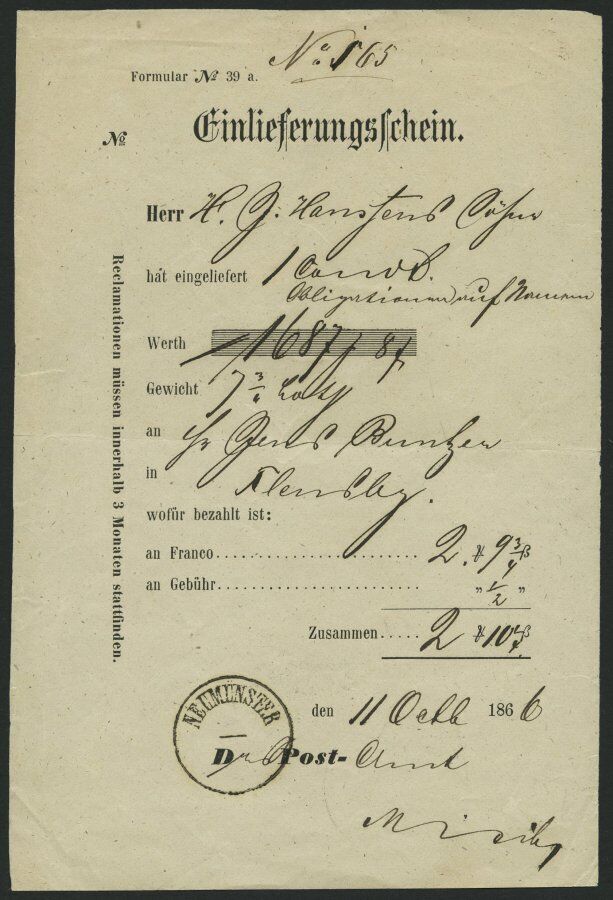 No 565
Formular No 39 a.
Einlieferungsschein.
No
Herr H. J. Hanssens Söhne
hat eingeliefert 1 Convol.
Obligationen auf Namen
Werth 1687 / 87
Gewicht 7 3/4 Loth
an Hr Jens Buntzen
in Flensbg.
wofür bezahlt ist:
an Franco 2. 9 3/4 β
an Gebühr " 1/2 "
Zusammen 2 10 1/4 β
NEUMÜNSTER
den 11 Octb 1866
D Post- Amt
Reclamationen müssen innerhalb 3 Monaten stattfinden.